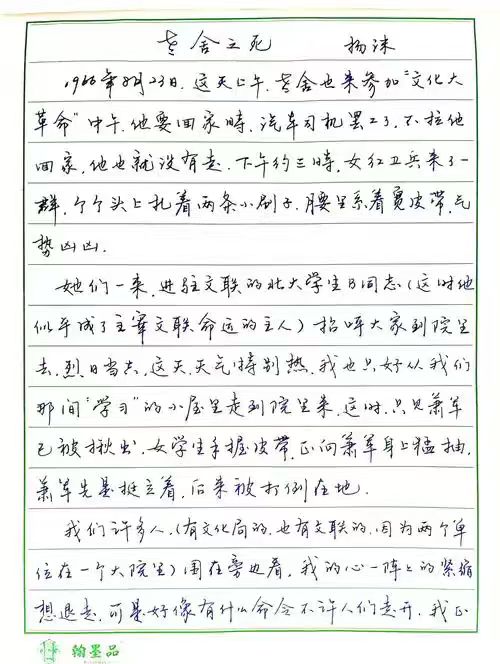 老舍之死 杨沫
1966年8月23日,这天上午,老舍也来参加“文化大
革命”中午,他要回家時,汽车司机罢工了,不拉他
回家,他也就没有走.下午约三時,女红卫兵来了一
群,个个头上扎着两条小刷子,腰里系着宽皮带,气
势凶凶.
她们一来,进驻文联的北大学生B同志(这时他
似乎成了主宰文联命运的主人)招呼大家到院里
去,烈日当空,这天,天气特别热,我也只好从我们
那间“学习”的小屋里走到院里来,这时,只见萧军
已被揪出,女学生手握皮带,正向萧军身上猛抽,
萧军先是挺立着,后来被打倒在地.
我们许多人,(有文化局的,也有文联的,因为两个单
位在一个大院里)围在旁边看,我的心一阵上的紧缩
想退走,可是好像有什么命令不许人们走开,我正
翰墨品